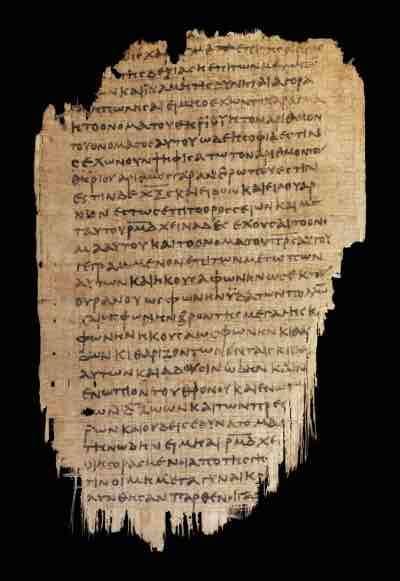 ΧΑΡΑΓΜΑ
ΤΗϹ ΔΕΞΙΑϹ Η ΕΠΙ ΤΩΝ ΜΕΤΩ
Ν ΚΑΙ ΙΝΑ ΜΗΤΙϹ ΔΥΝΗΤΑΙ ΑΓΟΡΑ
ΕΙ ΜΗ Ο ΕΧΩΝ ΤΟ ΧΑΡΑΓΜΑ
Η ΤΟ ΟΝΟΜΑ ΤΟΥ ΘΗΡΙΟΥ Η ΤΟΝ ΑΡΙΘΜΟΝ
ΤΟΥ ΟΝΟΜΑΤΟϹ ΑΥΤΟΥ ΩΔΕ Η ϹΟΦΙΑ ΕϹΤΙΝ
Ο ΕΧΩΝ ΟΥΝ ΨΗΦΙϹΑΤΩ ΤΟΝ ΑΡΙΘΜΟΝ ΤΟΥ
ΘΗΡΙΟΥ ΑΡΙΘΜΟϹ ΓΑΡ ΑΝΘΡΩΠΟΥ ΕϹΤΙΝ
ΕϹΤΙΝ ΔΕ Χ̅Ξ̅Ϛ̅ ΚΑΙ ΕΙΔΟΝ ΚΑΙ ΕΙΔΟΥ ΑΡ
ΝΙΟΝ ΕϹΤΩϹ ΕΠΙ ΤΟ ΟΡΟϹ ϹΕΙΩΝ ΚΑΙ ΜΕ
Τ ΑΥΤΟΥ Ρ̅Μ̅Δ̅ ΧΕΙΛΙΑΔΕϹ ΕΧΟΥϹΑΙ ΤΟ ΟΝΟ
ΜΑ ΑΥΤΟΥ ΚΑΙ ΤΟ ΟΝΟΜΑ ΤΟΥ Π̅Ρ̅Ϲ̅ ΑΥΤΟΥ
ΓΕΓΡΑΜΜΕΝΟΝ ΕΠΙ ΤΩΝ ΜΕΤΩΠΩΝ
ΑΥΤΩΝ ΚΑΙ ΗΚΟΥϹΑ ΦΩΝΗΝ ΩϹ ΕΚ ΤΟΥ
ΟΥΡΑΝΟΥ ΩϹ ΦΩΝΗΝ ΫΔΑΤΩΝ ΠΟΛΛΩ
ΚΑΙ ΩϹ ΦΩΝΗΝ ΒΡΟΝΤΗϹ ΜΕΓΑΛΗϹ Κ
ΦΩΝΗΝ ΗΚΟΥϹΑ ΩϹ ΦΩΝΗΝ ΚΙΘΑ
ΔΩΝ ΚΙΘΑΡΙΖΟΝΤΩΝ ΕΝ ΤΑΙϹ ΚΙΘΑ
ΑΥΤΩΝ ΚΑΙ ΑΔΟΥϹΙΝ ΩΔΗΝ ΚΑΙΝ
ΕΝΩΠΙΟΝ ΤΟΥ ΘΡΟΝΟΥ ΚΑΙ ΕΝΩ
ΤΩΝ Δ̅ ΖΩΩΝ ΚΑΙ ΤΩΝ ΠΡΕϹ
ΡΩΝ ΚΑΙ ΟΥΔΕΙϹ ΕΔΥΝΑΤΟ ΜΑΘ
ΤΗΝ ΩΔΗΝ ΕΙ ΜΗ ΑΙ Ρ̅Μ̅Δ̅ ΧΕ
ΟΙ ΗΓΟΡΑϹΜΕΝΟΙ ΑΠΟ ΤΗϹ ΓΗ
ΤΙΝ ΟΙ ΜΗ ΜΕΤΑ ΓΥΝΑΙΚ
ΛΥΝΘΗϹΑΝ ΠΑΡΘΕΝΟΙ ΓΑ